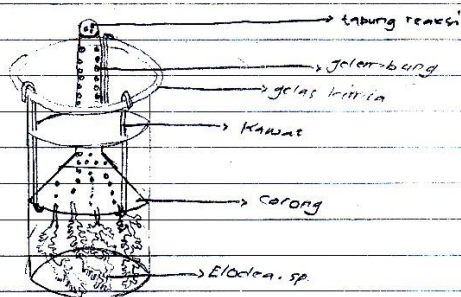 tabung reaksi
gelembung
gelas kimia
Kawat
corong
Elodea.sp.